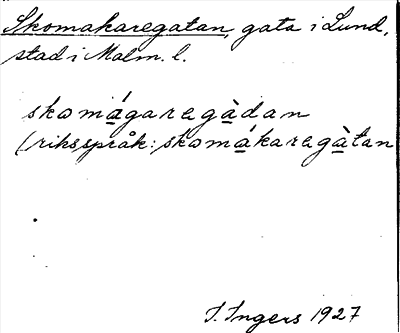 Skomakaregatan, gata i Lund,
stad i Malm. l.
skomágaregàdan
(riksspråk: skomákaregàtan
I. Ingers 1927